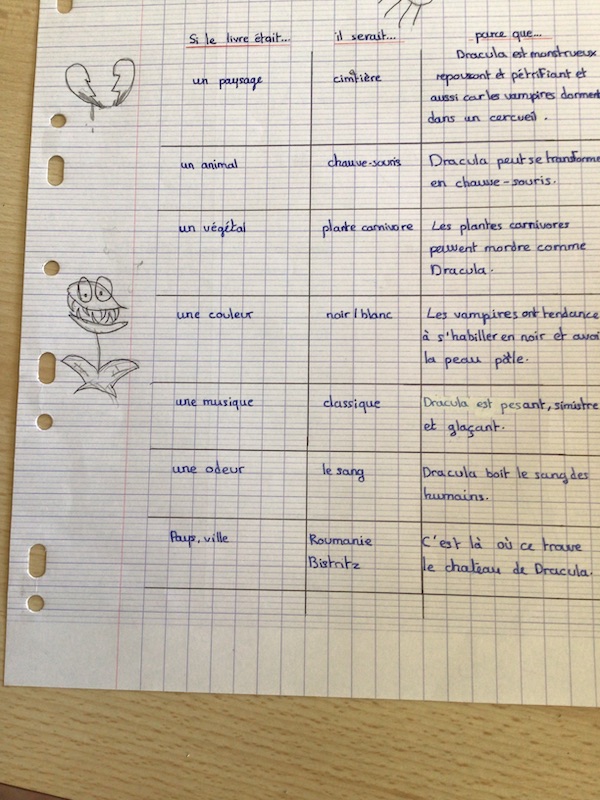 Si le livre était... il serait... parce que...
Dracula est monstrueux
un paysage cimtière repoussant et pétrifiant et
aussi car les vampires dorment
dans un cercueil.
un animal chauve-souris Dracula peut se transforme
en chauve-souris.
un végétal plante carnivore Les plantes carnivores
peuvent mordre comme
Dracula.
une couleur noir/blanc Les vampires ont tendance
à s'habiller en noir et avoi
la peau pâle.
une musique classique Dracula est pesant, sinistre
et glaçant.
une odeur le sang Dracula boit le sang des
humains.
Pays, ville Roumanie C'est là où ce trouve
Bistritz le chateau de Dracula.